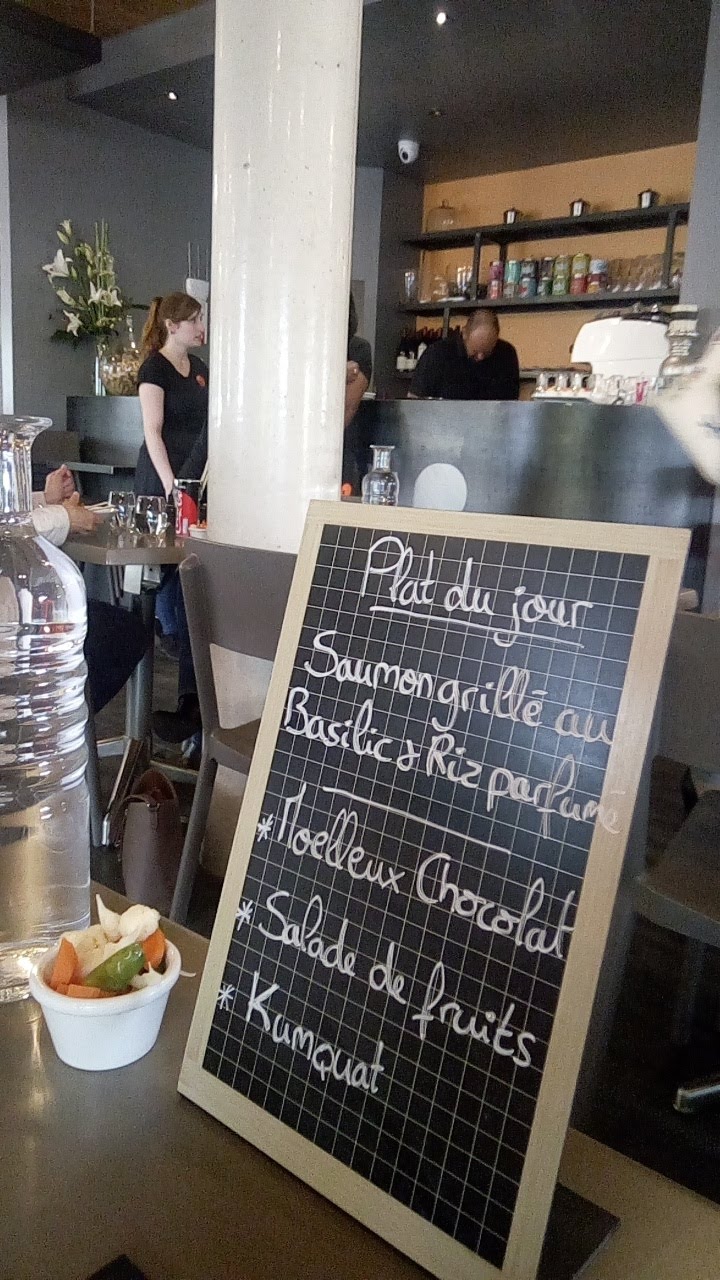 Plat du jour
Saumon grillé au
Basilic & Riz parfumé
* Moelleux Chocolat
* Salade de fruits
* Kumquat